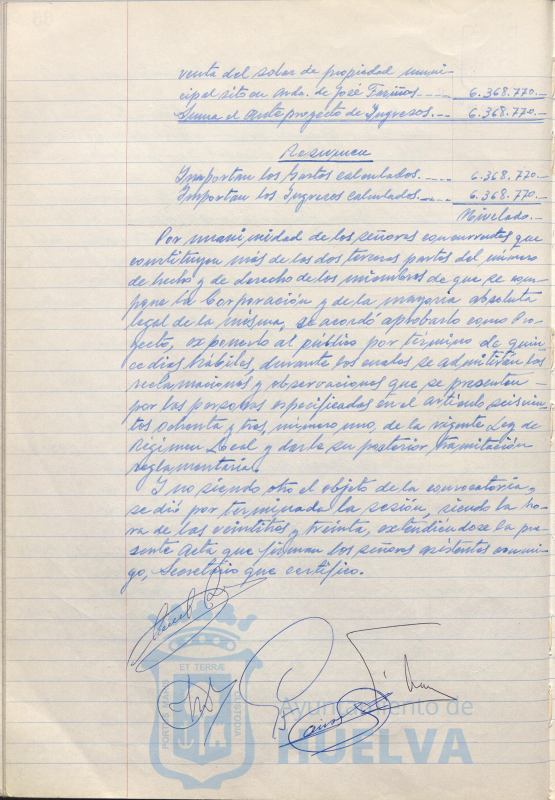 venta del solar de propiedad muni-
cipal sito en Avda. de José Fariñas.---- 6.368.770.—
Suma el Anteproyecto de Ingresos.-- 6.368.770.—
Resumen
Importan los Gastos calculados.---- 6.368.770.—
Importan los Ingresos calculados.---- 6.368.770.—
Nivelado.—
Por unanimidad de los señores concurrentes que
constituyen más de las dos terceras partes del número
de hecho y de derecho de los miembros de que se com-
pone la Corporación y de la mayoría absoluta
legal de la misma, se acordó aprobarlo como Pro-
yecto, exponerlo al público por término de quin-
ce días hábiles, durante los cuales se admitirán las
reclamaciones y observaciones que se presenten
por las personas especificadas en el artículo seiscien-
tos ochenta y tres, número uno, de la vigente Ley de
Régimen Local y darle su posterior tramitación
reglamentaria.
Y no siendo otro el objeto de la convocatoria,
se dió por terminada la sesión, siendo la ho-
ra de las veintitres y treinta, extendiéndose la pre-
sente Acta que firman los señores asistentes conmi-
go, Secretario que certifico.
ET TERRÆ
PORTUS MARIS
CUSTODIA
Ayuntamiento de
HUELVA